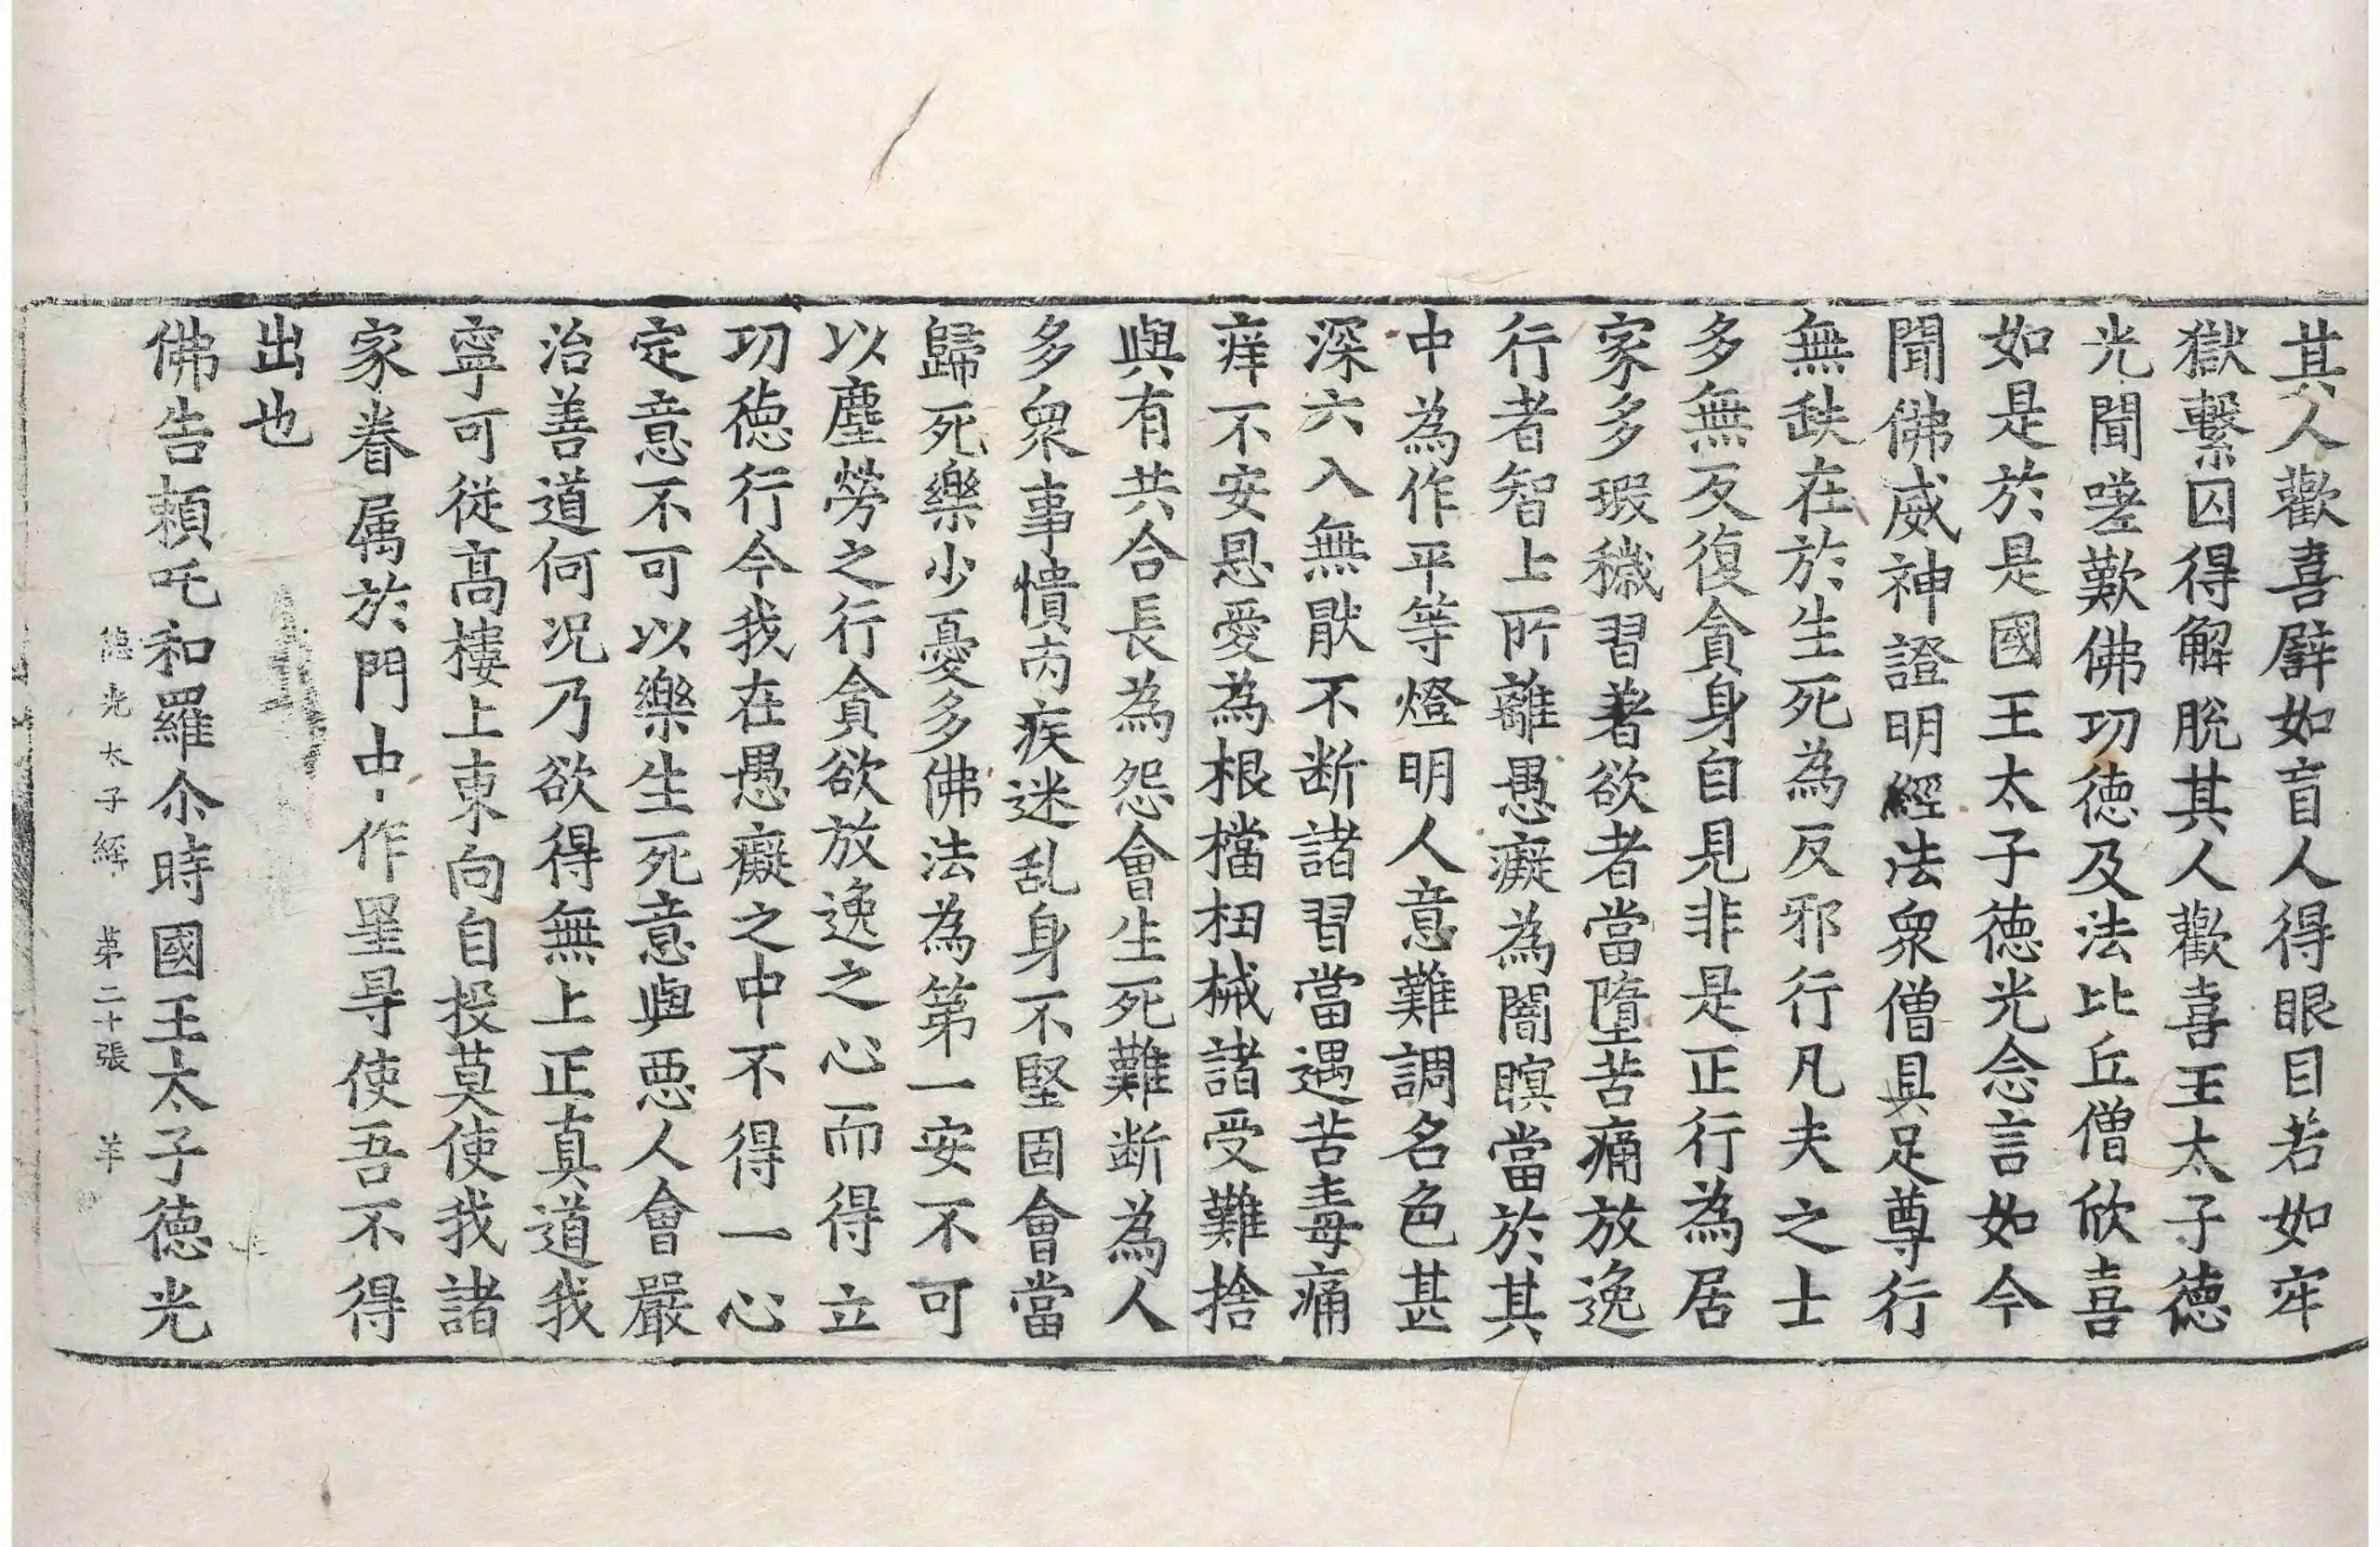 其人歡喜譬如盲人得眼目若如牢
獄繫囚得解脫其人歡喜王太子德
光聞嗟歎佛功德及法比丘僧欣喜
如是於是國王太子德光念言如今
聞佛威神證明經法衆僧具足尊行
無𡙇在於生死為反邪行凡夫之士
多無反復貪身自見非是正行為居
家多瑕穢習著欲者當墮苦痛放逸
行者智上所離愚癡為闇瞑當於其
中為作平等燈明人意難調名色甚
深六入無猒不断諸習當遇苦毒痛
痒不安恩愛為根檔杻械諸受難捨
與有共合長為怨會生死難断為人
多衆事憒丙疾迷乱身不堅固會當
歸死樂少憂多佛法為第一安不可
以塵勞之行貪欲放逸之心而得立
功德行今我在愚癡之中不得一心
定意不可以樂生死意與惡人會嚴
治善道何况乃欲得無上正真道我
寧可従高樓上東向自投莫使我諸
家眷属於門中作罣㝵使吾不得
出也
佛告頼吒和羅尒時國王太子德光
德光太子經 第二十張 羊